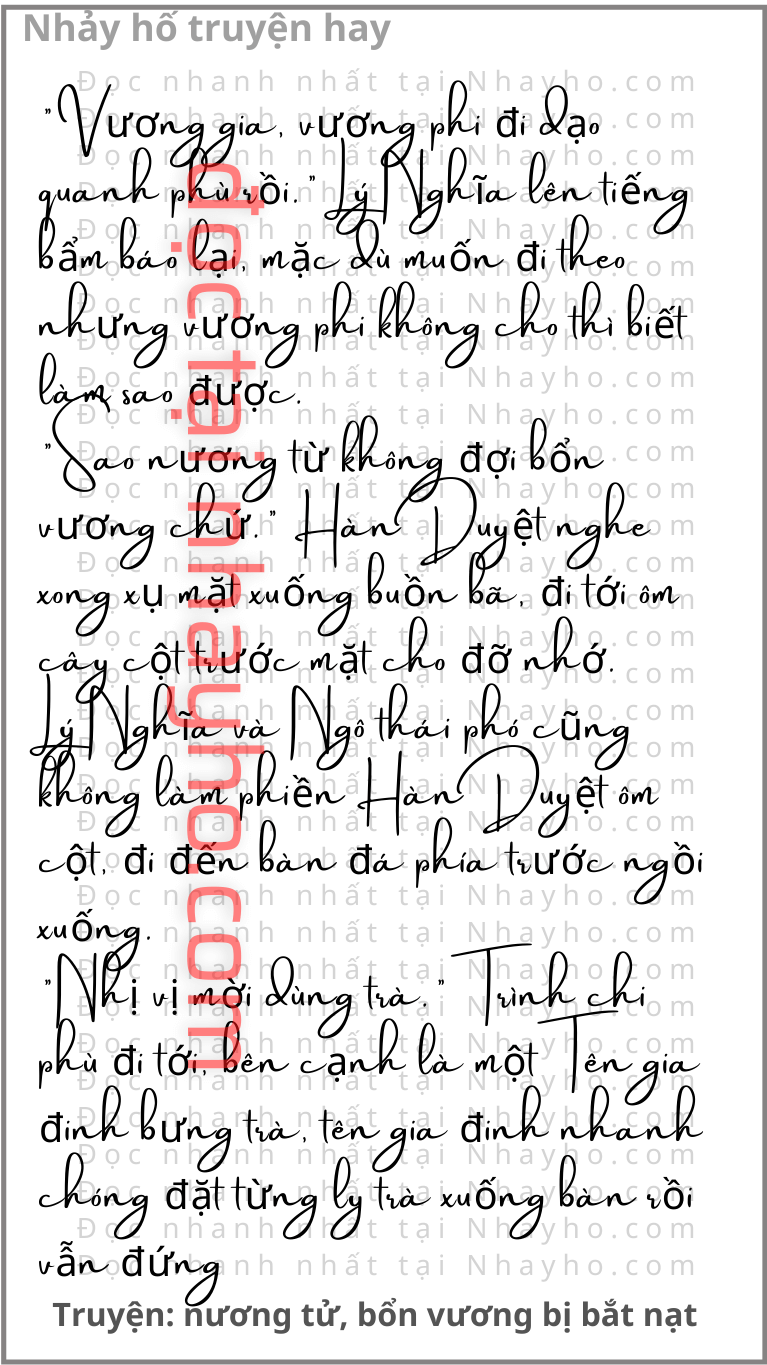 Nhảy hố truyện hay
"Vương gia, vương phi đi dạo
quanh phù rồi." Lý Nghĩa lên tiếng
bẩm báo lại, mặc dù muốn đi theo
nhưng vương phi không cho thì biết
làm sao được.
"Sao nương từ không đợi bổn
vương chứ." Hàn Duyệt nghe
xong xụ mặt xuống buồn bã, đi tới ôm
cây cột trước mặt cho đỡ nhớ.
Lý Nghĩa và Ngô thái phó cũng
không làm phiền Hàn Duyệt ôm
cột, đi đến bàn đá phía trước ngồi
xuống.
"Nhị vị mời dùng trà." Trình chi
phù đi tới, bên cạnh là một Tên gia
đinh bưng trà, tên gia đinh nhanh
chóng đặt từng ly trà xuống bàn rồi
vẫn đứng
đọc tại nhayho.com
Truyện: nương tử, bổn vương bị bắt nạt